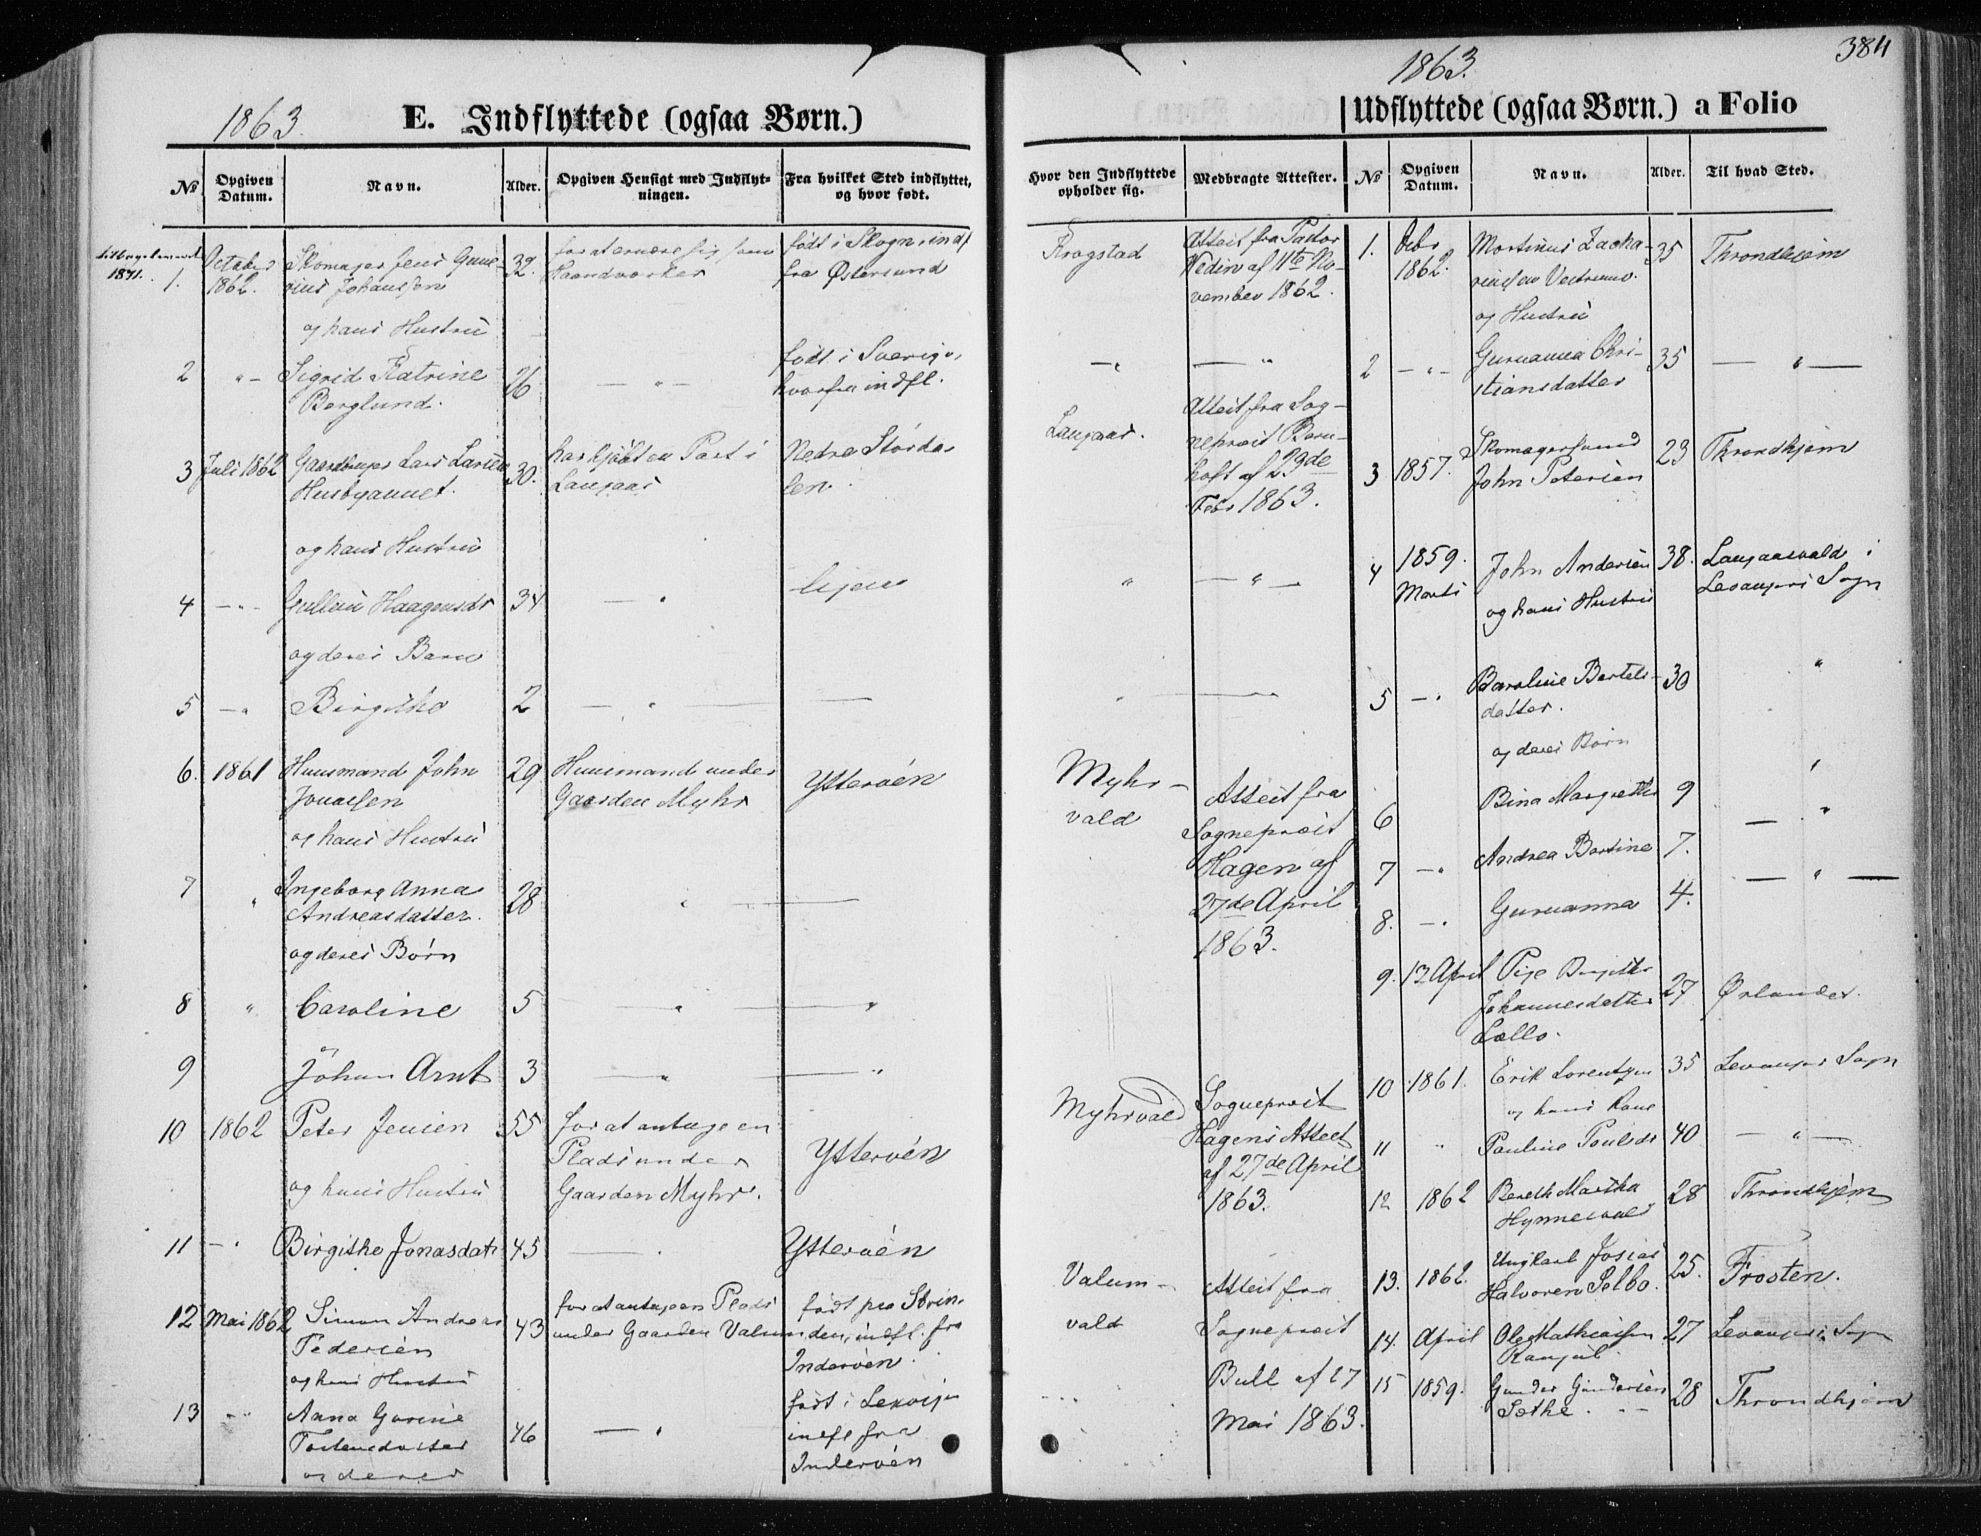 1863.
E. Indflyttede (ogsaa Børn.)
No
Opgiven Datum.
Navn.
Alder.
Opgiven Hensigt med Indflyt-
ningen.
Fra hvilket Sted indflyttet,
og hvor født.
1871.
1.
October
1862.
Skomager Jens Gune-
rius Johansen
32.
for at ernære sig som
Haandværker
født i Skogn, indf
fra Østersund
og hans Hustru
2
"-
Sigrid Katrine
Berglund.
26
— " —
født i Sverige,
hvorfra indfl.
3
Juli 1862
Gaardbruger Lars Larsen
Husbyaunet.
30.
har kjøbt en Part i
Langaas
Nedre Størda-
len
og hans Hustru
4
— " -
Haagensdr
34
— "
og deres Barn
5
— "
Birgitha
2
— " —
—
6.
1861
Huusmand John
Jonassen
29
Huusmand under
Gaarden Myhr
Ytterøen
og hans Hustru
7
"
Ingeborg Anna
Andreasdatter.
28
"
—
og deres Børn
8
"
Caroline
5
— "
— "
9
Johan Arnt
3
— "
— "
10
1862
Peter Jensen
55
for at antage en
Plads under
Gaarden Myhr.
Ytterøen
og hans Hustru
11
— "
Birgithe Jonasdatr
45
— "
Ytterøen
12
Mai 1862
Simon Andreas
Pedersen
43
for at antage en Plads
under Gaarden Valum
født paa Strin-
den, indfl. fra
Inderøen.
og hans Hustru
13
"
Anna Gurine
Torstensdatter
46
— "
født i Lexvigen
indfl fra
Inderøen
og deres
1863.
384
Udflyttede (ogsaa Børn.) a Folio
Hvor den Indflyttede
opholder sig.
Medbragte Attester.
No
Opgiven
Datum.
Navn.
Alder.
Til hvad Sted.
Krogstad
Attest fra Pastor
Vedin af 11te No-
vember 1862.
1.
1862.
Martinus Zacha-
riasen
og Hustru
35
Throndhjem
— "
— "
2
— " —
Guruanna Chri-
stiansdatter
35
— " —
Langaas.
Attest fra Sog-
neprest Bern-
hoft af 29de
Febr 1863.
3
1857.
Skomagersvend
John Petersen
23
Throndhjem
"
— " —
4
1859.
Marts
John Andersen
og hans Hustru
38.
Langaasvald i
Levangers Sogn
"
— "
5
— "
Baroline Bertels-
datter.
30
"
og deres Børn
Myhr-
vald
Attest fra
Sogneprest
Hagen af
27de April
1863.
6
Bina Margrethe
9
"
— "
7
— "
Andrea Bartine
7.
— " —
8.
— "
Guruanna
4.
9.
12 April
Pige Birgitte
Johannesdatter
27
Ørlandet.
10
1861.
Erik Lorentzen
35
Levangers Sogn
og hans Kone
Myhrvald
Sogneprest
Hagens Attest
af 27de April
1863.
11
"
Pauline Paulsdr
40
— " —
12
1862
Bereth Martha
28
Throndhjem
13.
1862.
Ungkarl Josias
Halvorsen Selbo.
25.
Frosten.
Valum-
vald
Attest fra
Sogneprest
Bull af 27
Mai 1863.
14.
April
Ole Mathiassen
27
Levangers Sogn
15
1859.
Gunder Gundersen
28
Throndhjem